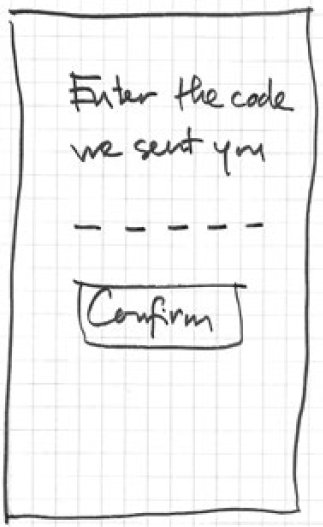 Enter the code
we sent you
Confirm